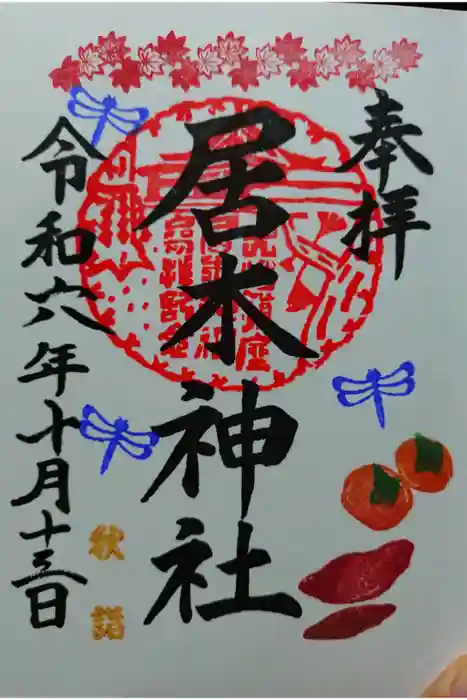 奉拝
居木神社
秋詣
令和六年十月十三日